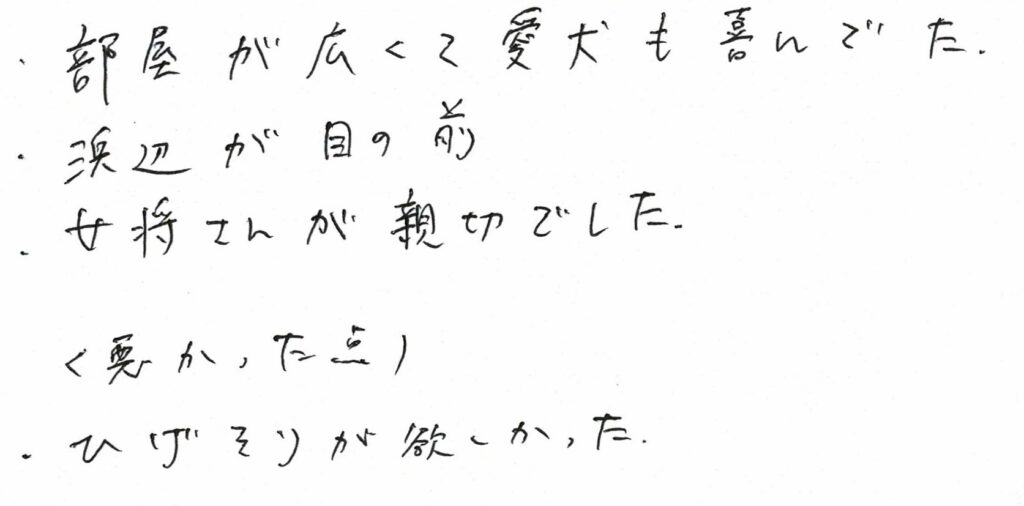 ・部屋が広くて愛犬も喜んでた.
・浜辺が目の前
・女将さんが親切でした.
(悪かった点)
・ひげそりが欲しかった.